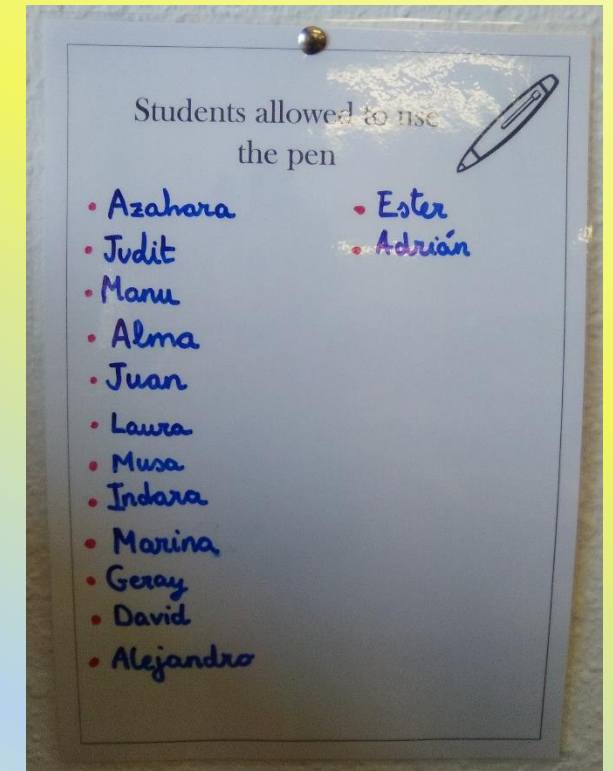 Students allowed to use
the pen
• Azahara
• Judit
• Manu
• Alma
• Juan
• Laura
• Musa
• Indara
• Marina
• Geray
• David
• Alejandro
• Ester
• Adrián